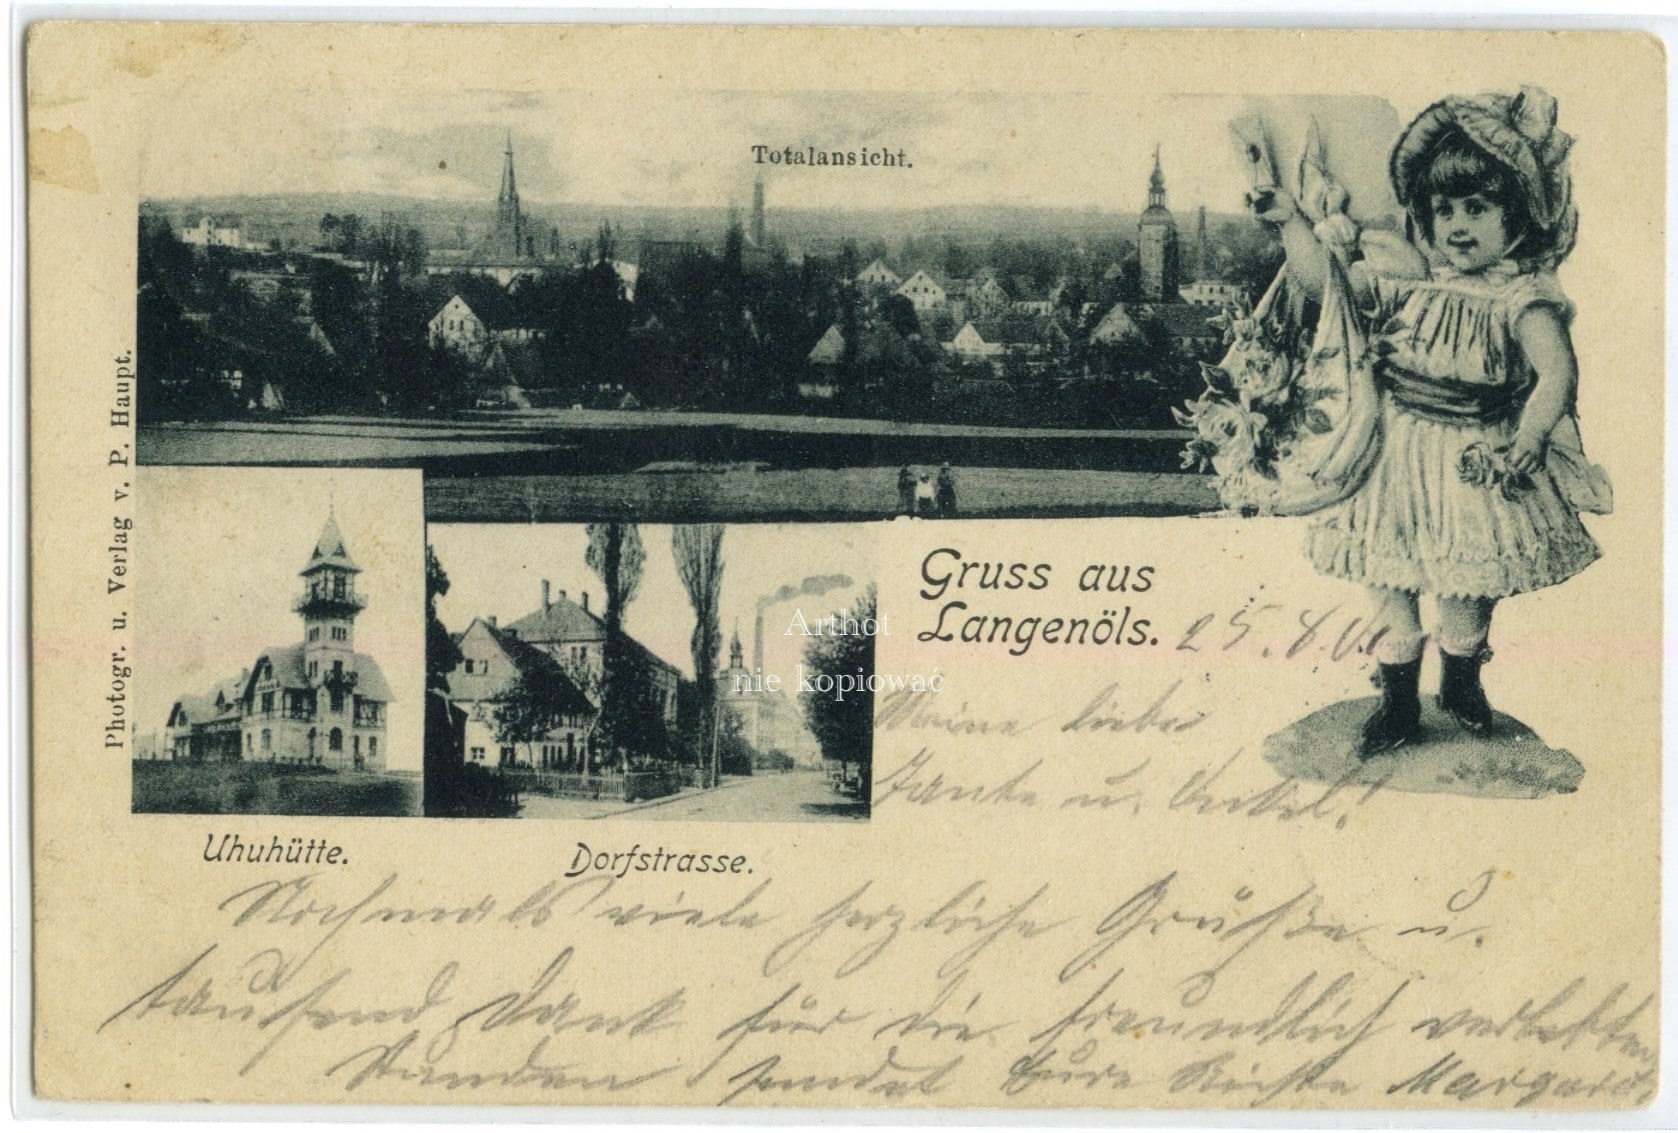 Totalansicht.
Photogr. u. Verlag v. P. Haupt.
Gruss aus
Langenöls.
25.8.
Arthot
nie kopiować
Meine liebe
Tante u. Onkel!
Uhuhütte.
Dorfstrasse.
Nochmals viele herzliche Grüße u.
tausend Dank für die freundlich verlebten
Stunden sendet Eure Nichte Margarete